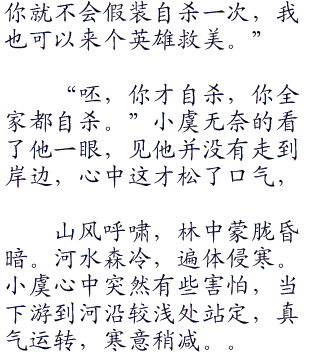 你就不会假装自杀一次，我
也可以来个英雄救美。”
“呸，你才自杀，你全
家都自杀。”小虞无奈的看
了他一眼，见他并没有走到
岸边，心中这才松了口气，
山风呼啸，林中蒙胧昏
暗。河水森冷，遍体侵寒。
小虞心中突然有些害怕，当
下游到河沿较浅处站定，真
气运转，寒意稍减。。